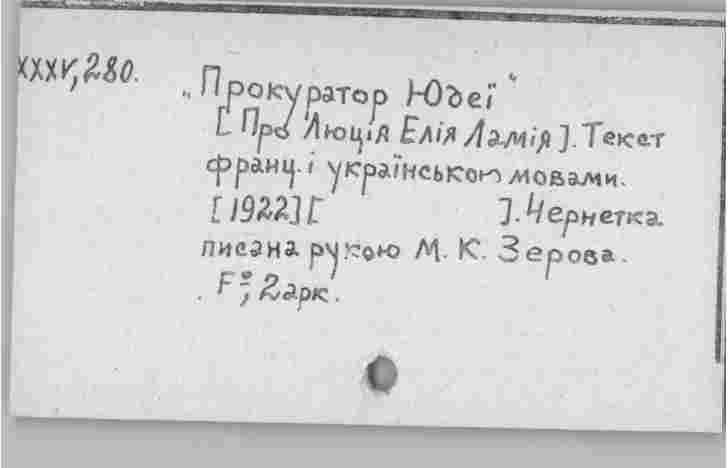 XXXV, 280.
„Прокуратор Юдеї"
[Про Люція Елія Ламія]. Текст
франц. і українською мовами.
[1922] [ ]. Чернетка
писана рукою М. К. Зерова.
F°, 2 арк.